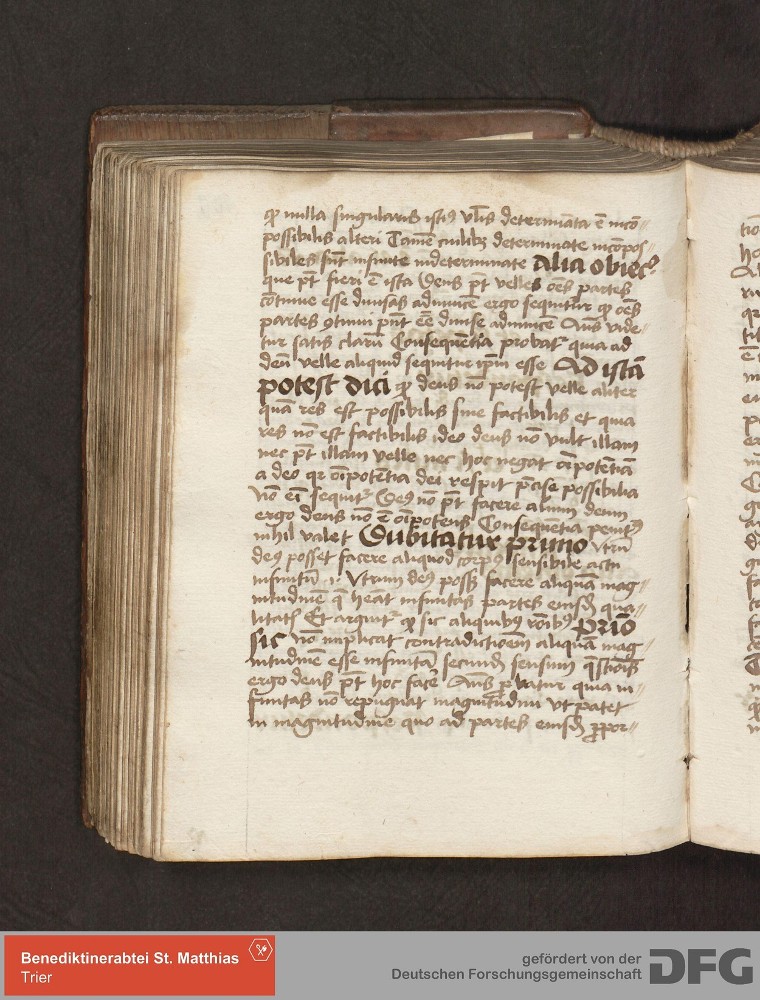 qꝫ nulla singularis istiꝰ vl̄is determīata ē incō⸗
possibilis alteri Tamē cuilibꝫ determinate incōpos⸗
sibiles sūt infinite indeterminate Alia obiecꝰ
que pt̄ fieri ē ista Deus pt̄ velle oēs partes
cōtinue esse diuisas adinuicē ergo sequitur qꝫ oēs
partes ꝯtinui pn̄t eē diuise adinuicē Ans̄ vide⸗
tur satis clarū Consequētia probatꝛ quia ad
deū velle aliquid sequitur ip̄m esse Ad istā
potest dici qꝫ deus nō potest velle aliter
quā res est possibilis siue factibilis et quia
res nō est factibilis ideo deus nō vult illam
nec pt̄ illam velle nec hoc negat oīpotētiā
a deo qꝛ oīpotētia dei respīt p̄cise possibilia
nō eī sequitꝛ Deꝰ nō pt̄ facere alium deum
ergo deus nō ē oīpotens Consequētia penitꝰ
nihil valet Dubitatur primo vtrū
deꝰ posset facere aliquod corpꝰ sensibile actu
infinitū Vtrum deꝰ posset facere aliquā mag⸗
nitudinē q̄ hēat infinitas partes eiusdē qua⸗
litatis Et arguitꝛ qꝫ sic aliquibꝰ rōnibꝰ Prīo
sic nō implicat contradictiōem aliquā mag⸗
nitudinē esse infinitā secundū sensum q̄stiōis
ergo deus pt̄ hoc facē Ans̄ ꝓbatur quia in⸗
finitas nō repugnat magnitudini vt patet
in magnitudine quo ad partes eiusdē ꝓpor⸗
Benediktinerabtei St. Matthias
Trier
gefördert von der
Deutschen Forschungsgemeinschaft
DFG